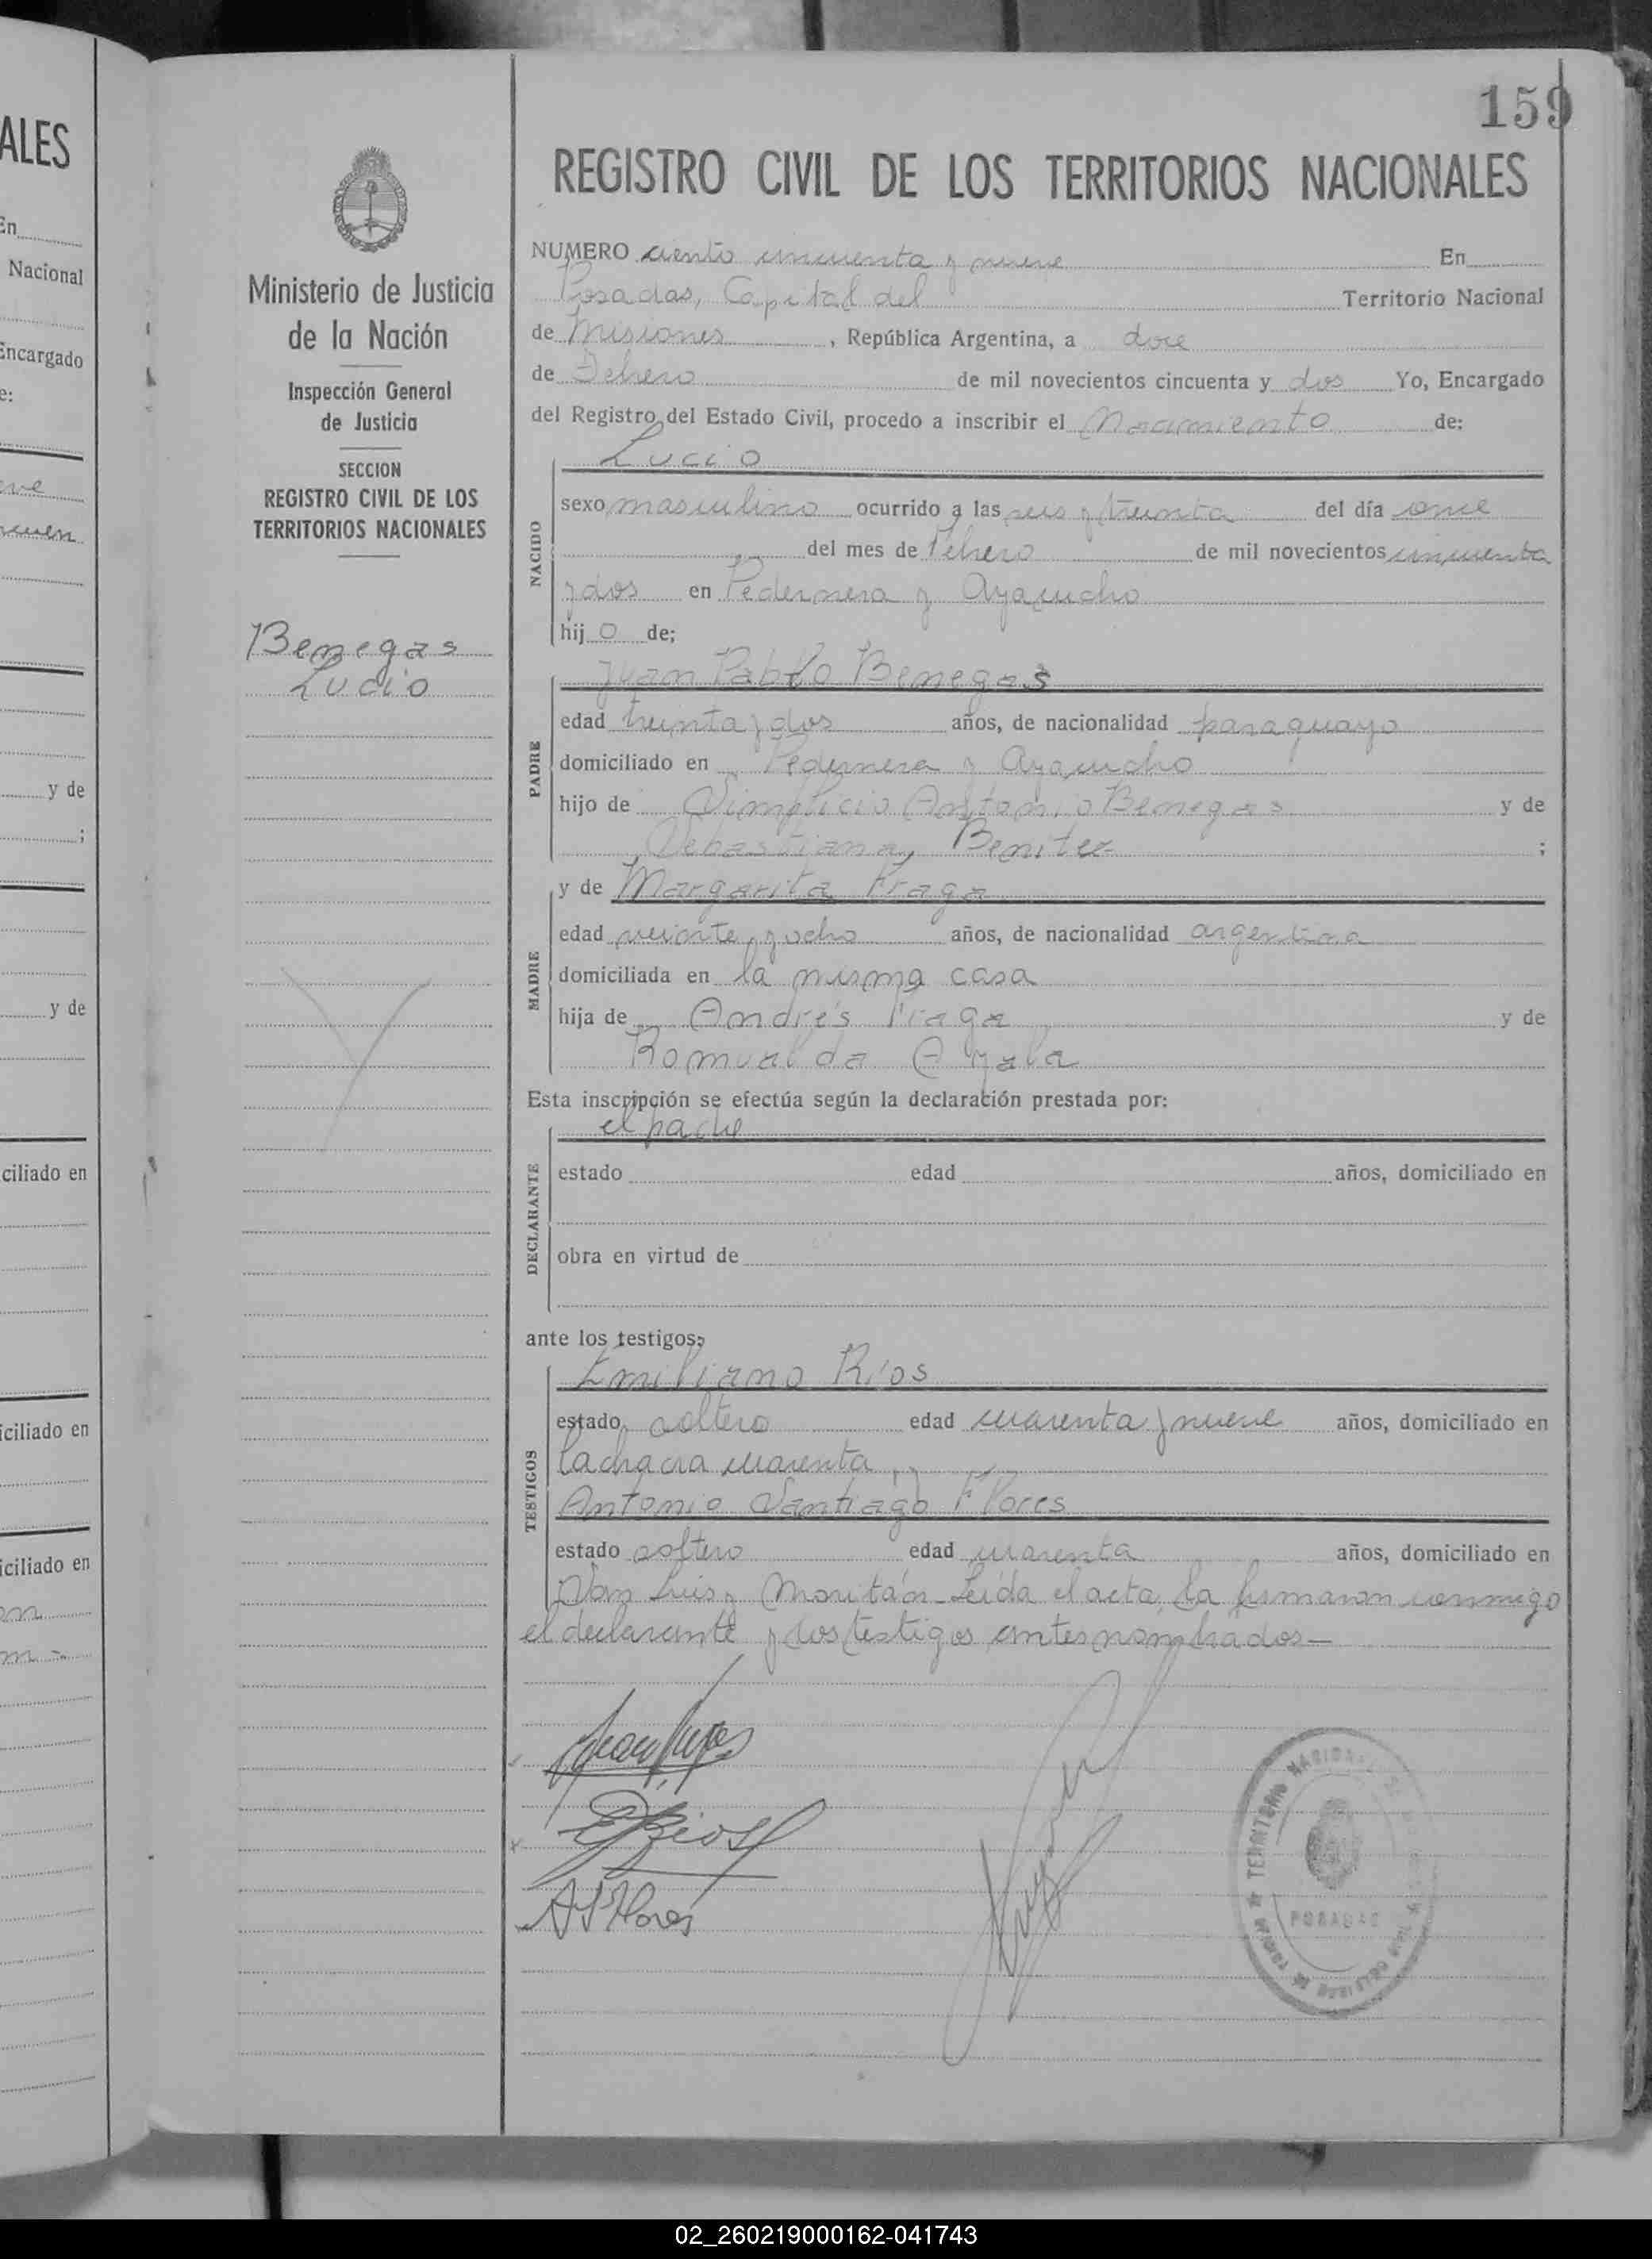 159
REGISTRO CIVIL DE LOS TERRITORIOS NACIONALES
NUMERO ciento cincuenta y nueve En
Posadas, Capital del Territorio Nacional
de Misiones, República Argentina, a doce
de Febrero de mil novecientos cincuenta y dos Yo, Encargado
del Registro del Estado Civil, procedo a inscribir el Nacimiento de:
Lucio
NACIDO
sexo masculino ocurrido a las seis y treinta del día once
del mes de Febrero de mil novecientos cincuenta
y dos en Pedernera y Ayacucho
hijo de;
Juan Pablo Benegas
PADRE
edad treinta y dos años, de nacionalidad paraguayo
domiciliado en Pedernera y Ayacucho
hijo de Antonio Benegas y de
Sebastiana Benitez ;
y de Margarita Fraga
MADRE
edad veinte y ocho años, de nacionalidad argentina
domiciliada en la misma casa
hija de Andrés Fraga y de
Romualda Ayala
Esta inscripción se efectúa según la declaración prestada por:
el padre
DECLARANTE
estado edad años, domiciliado en
obra en virtud de
ante los testigos;
Emiliano Ríos
TESTIGOS
estado soltero edad cuarenta y nueve años, domiciliado en
la chacra cuarenta y
Antonio Santiago Flores
estado soltero edad cuarenta años, domiciliado en
San Luis y Moritán - Leída el acta, la firmaron conmigo
el declarante y los testigos antes nombrados -
E Rios
A S Flores
TERRITORIO NACIONAL
POSADAS
Ministerio de Justicia
de la Nación
Inspección General
de Justicia
SECCION
REGISTRO CIVIL DE LOS
TERRITORIOS NACIONALES
Benegas
Lucio
ALES
En
Nacional
Encargado
e:
y de
;
y de
ciliado en
iciliado en
iciliado en
02_260219000162-041743